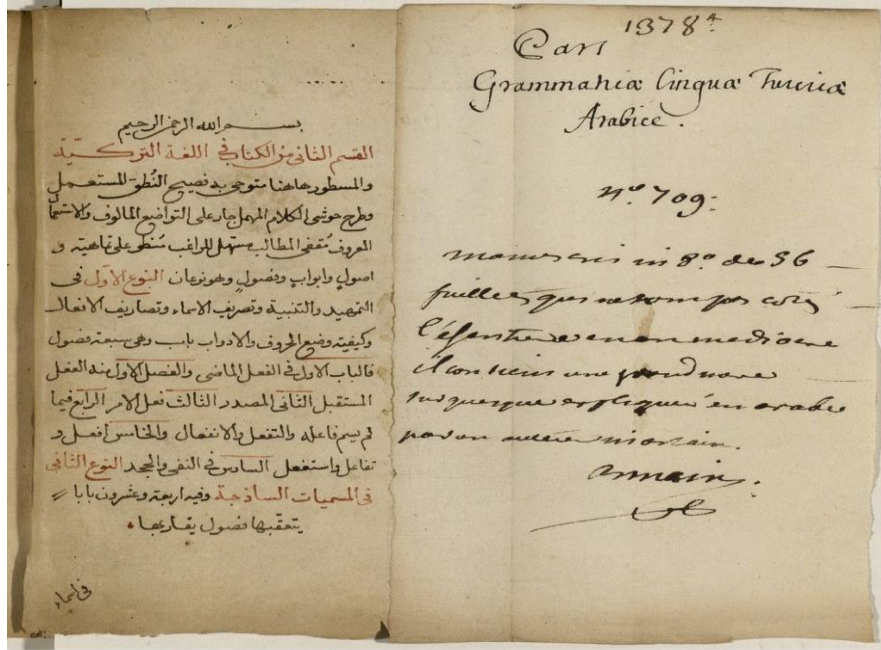 بسم الله الرحمن الرحيم
القسم الثاني من الكتاب في اللغة التركية
والمسطور هاهنا متوخى به فصيح النطق المستعمل
وطرح حوشى الكلام المهمل جار على التواضع المالوف والاستعمال
المعروف مقفى المطالب مسهل للراغب منطو على تماهيته و
اصول وابواب وفصول وهو نوعان النوع الاول فى
التمهيد والتنبية وتصريف الاسماء وتصاريف الافعال
وكيفية وضع الحروف والادوات باب وهى سبعة فصول
فالباب الاول فى الفعل الماضى والفصل الاول منه الفعل
المستقبل الثانى المصدر الثالث فعل الامر الرابع فيما
لم يسم فاعله والتفعل والانفعال والخامس افعل و
تفاعل واستفعل السادس فى النفى والجحد النوع الثانى
فى المسميات الساذجة وفيه اربعة وعشرون بابا
يتعقبها فصول يقاربها
فى اسماء
1378 A
Pars
Grammaticæ linguæ Turcicæ
Arabice.
n.o 709.
manuscrit in 8.o de 56
feuillets qui ne sont pas cotés
l'écriture en est médiocre
il contient une grammaire
turquesque expliquée en arabe
par un auteur incertain.
armain.